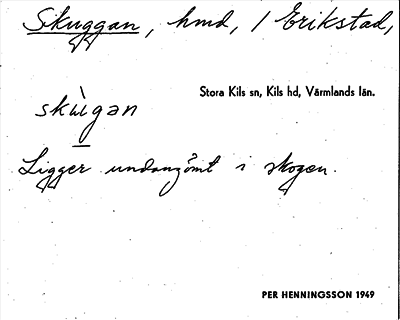 Skuggan, hmd, / Erikstad,
Stora Kils sn, Kils hd, Värmlands län.
skùgan
Ligger undangömt i skogen.
PER HENNINGSSON 1949